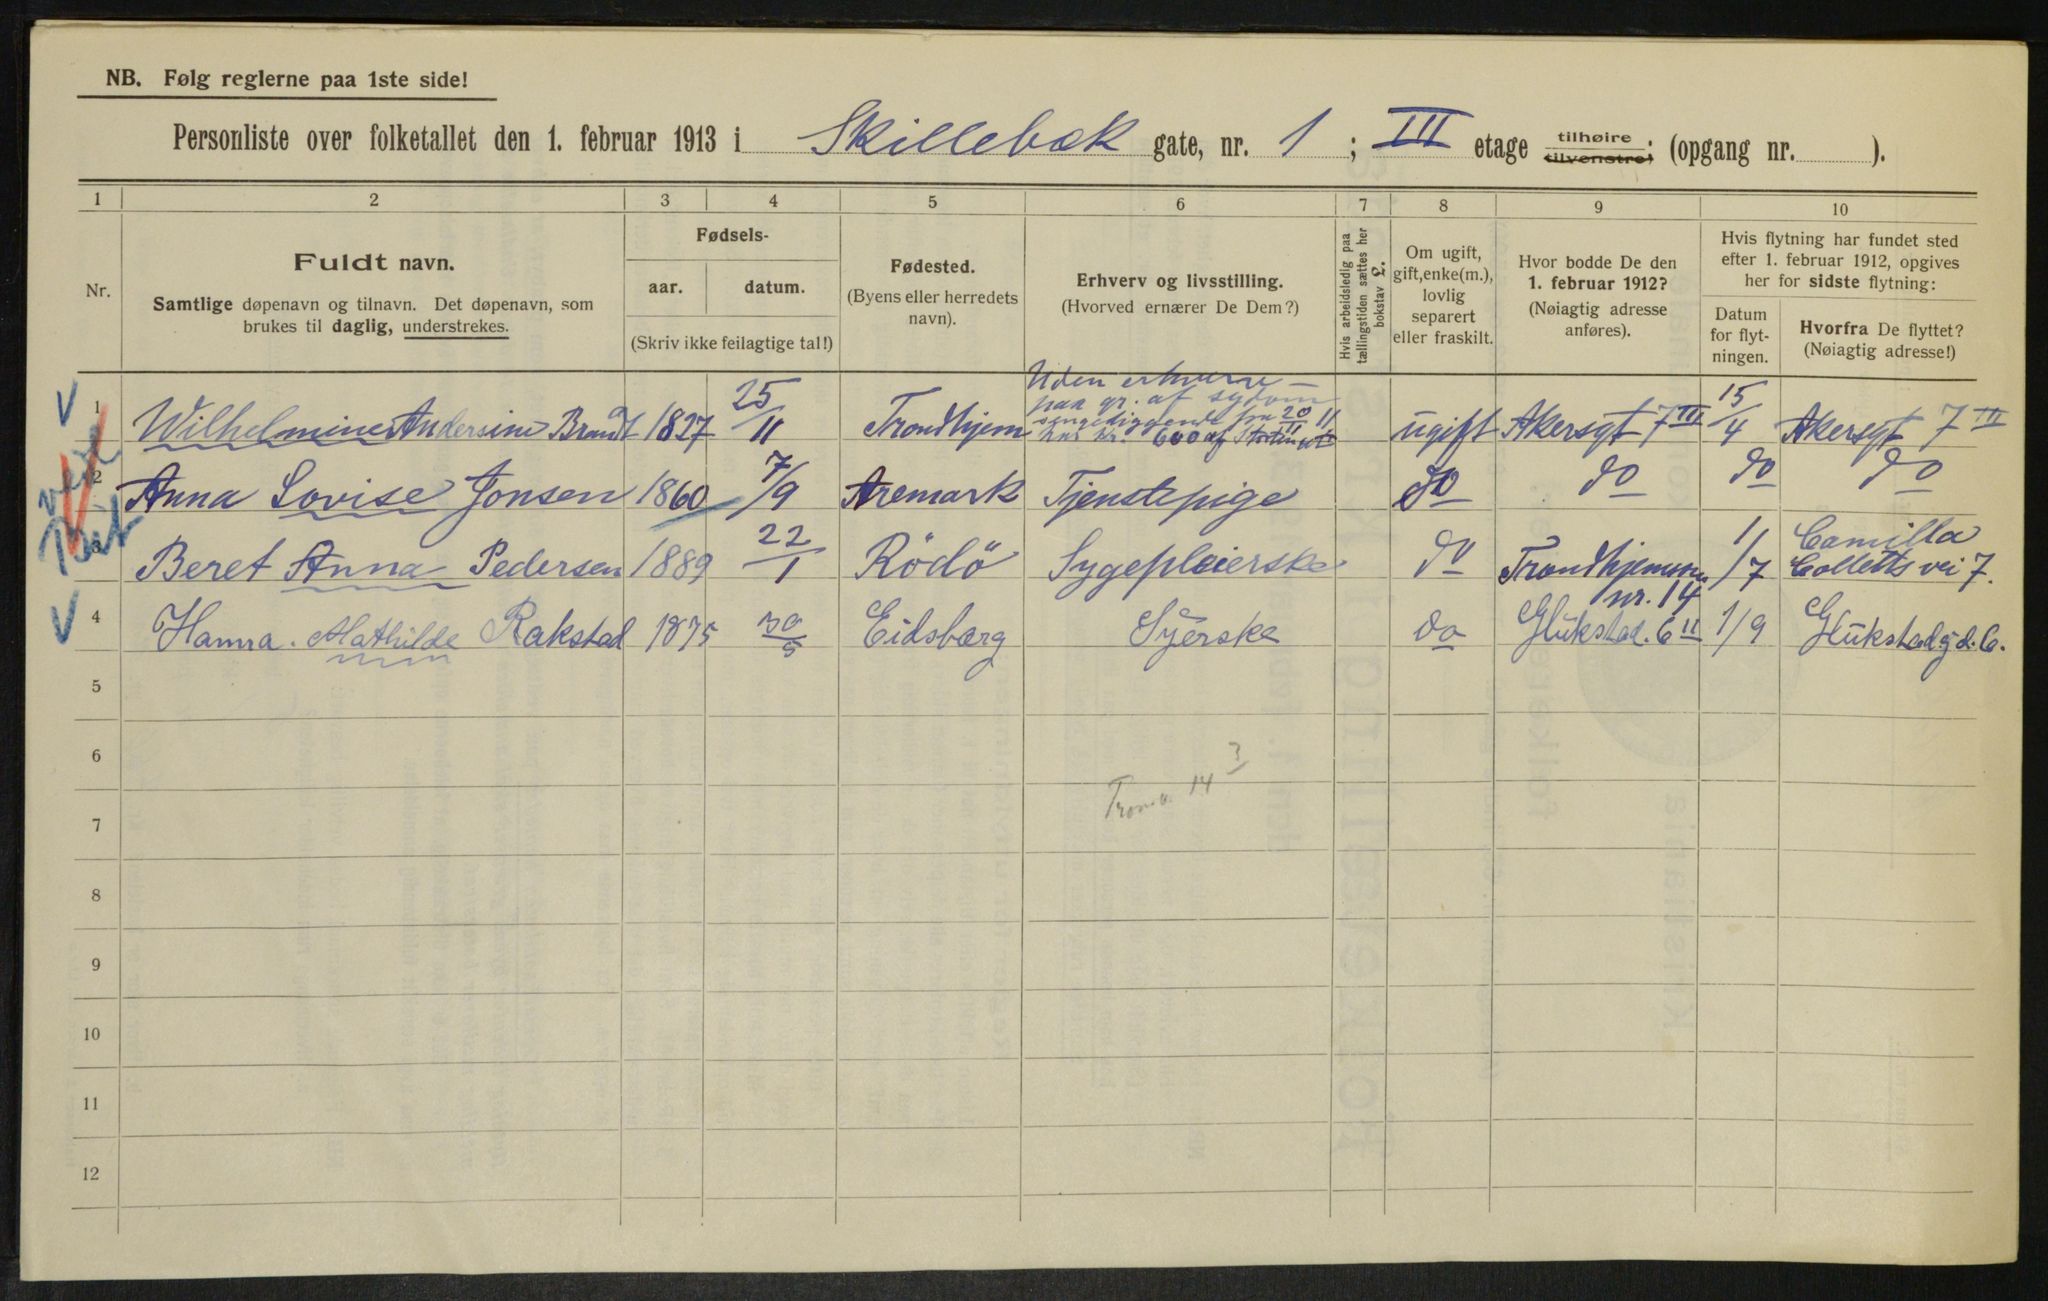 NB. Følg reglerne paa 1ste side!
Personliste over folketallet den 1. februar 1913 i Skillebæk gate, nr. 1 ; III etage tilhøire tilvenstre) ; (opgang nr. ).
1 2 3 4 5 6 7 8 9 10
Nr.
Fuldt navn.
Samtlige døpenavn og tilnavn. Det døpenavn, som
brukes til daglig, understrekes.
Fødsels-
aar. datum.
(Skriv ikke feilagtige tal!)
Fødested.
(Byens eller herredets
navn).
Erhverv og livsstilling.
(Hvorved ernærer De Dem?)
Hvis arbeidsledig paa
tællingstiden sættes her
bokstav L.
Om ugift,
gift, enke(m.),
lovlig
separert
eller fraskilt.
Hvor bodde De den
1. februar 1912?
(Nøiagtig adresse
anføres).
Hvis flytning har fundet sted
efter 1. februar 1912, opgives
her for sidste flytning:
Datum
for flyt-
ningen.
Hvorfra De flyttet?
(Nøiagtig adresse!)
1 Wilhelmine Andersine Brandt 1827 25/11 Trondhjem
Uden erhverv –
paa gr. af sygdom
sengeliggende fra 20/11 11
har kr. 600 af Stortinget
ugift Akersgt 7 III 15/4 Akersgt 7 III
2 Anna Lovise Jonsen 1860 7/9 Aremark Tjenstepige do do do do
3 Beret Anna Pedersen 1889 22/1 Rödö Sygepleierske do Trondhjemsv. nr. 14 1/7 Camilla
Colletts vei 7.
4 Hanna. Mathilde Rakstad 1875 30/5 Eidsbærg Syerske do Glukstad. 6 II 1/9 Glukstadgd. 6.
5
6
Tron.v. 14 3
7
8
9
10
11
12